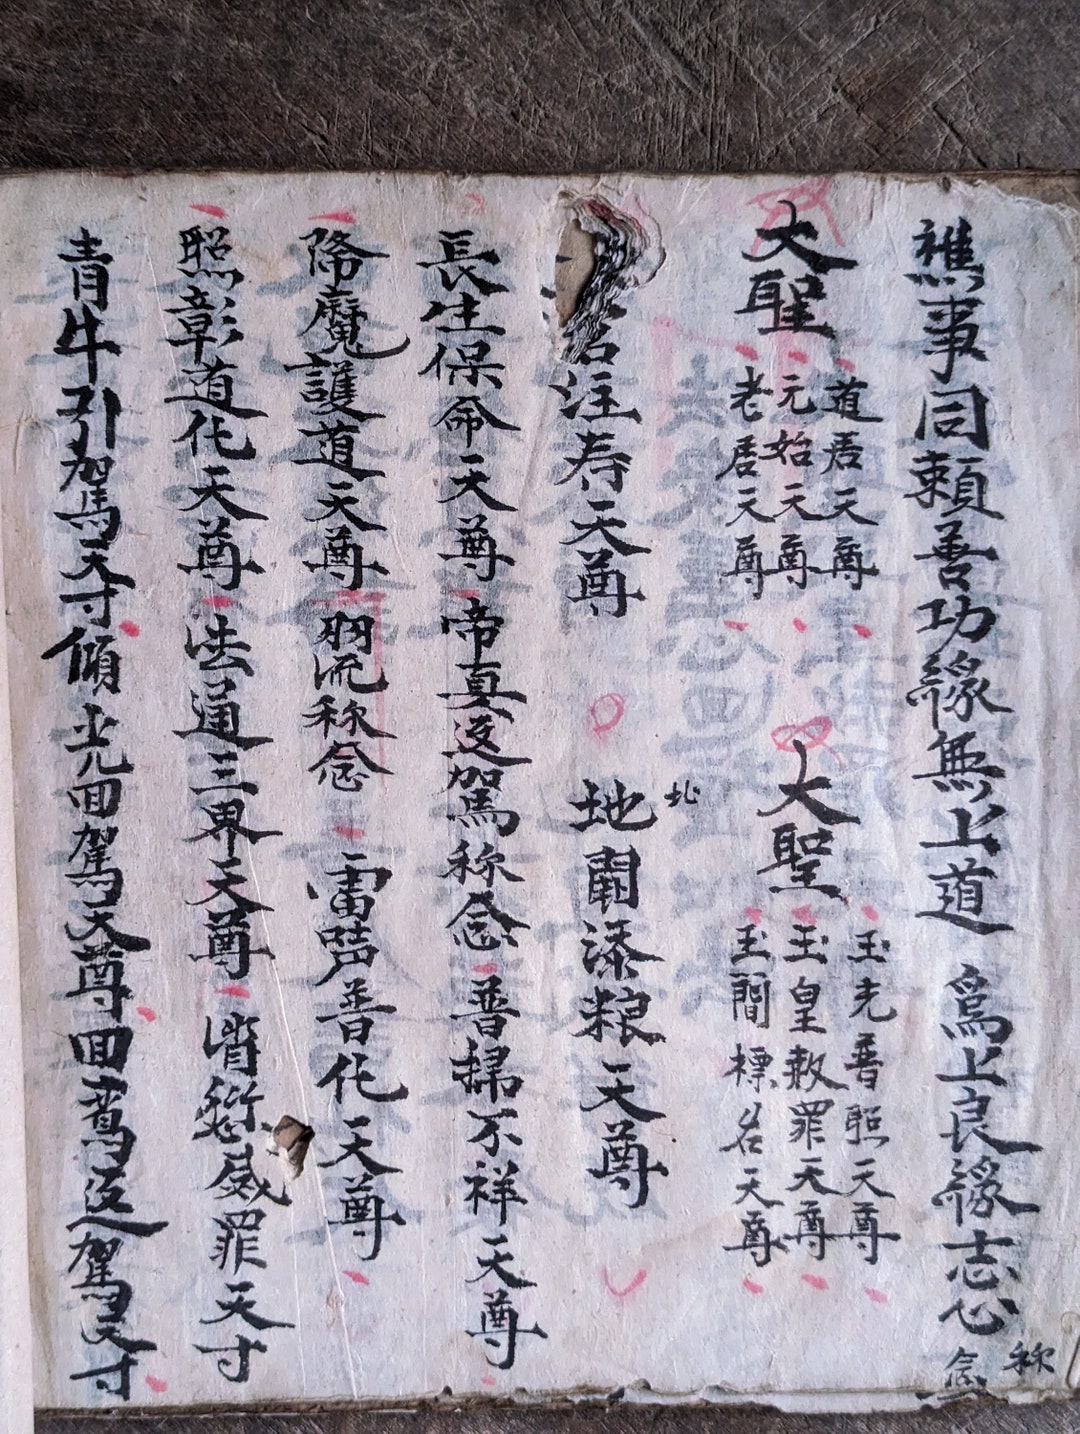 醮事同賴善功緣無上道 為上良緣志心
称念
大聖
道君天尊
元始天尊
老君天尊
大聖
玉光普照天尊
玉皇赦罪天尊
玉簡標名天尊
名注寿天尊 地府添粮天尊
北
長生保命天尊 帝真返駕称念 普掃不祥天尊
降魔護道天尊 羽流称念 雷声普化天尊
照彰道化天尊 法通三界天尊 消愆滅罪天寸
青牛引駕天寸 傾光回駕天尊 回鸞返駕天寸